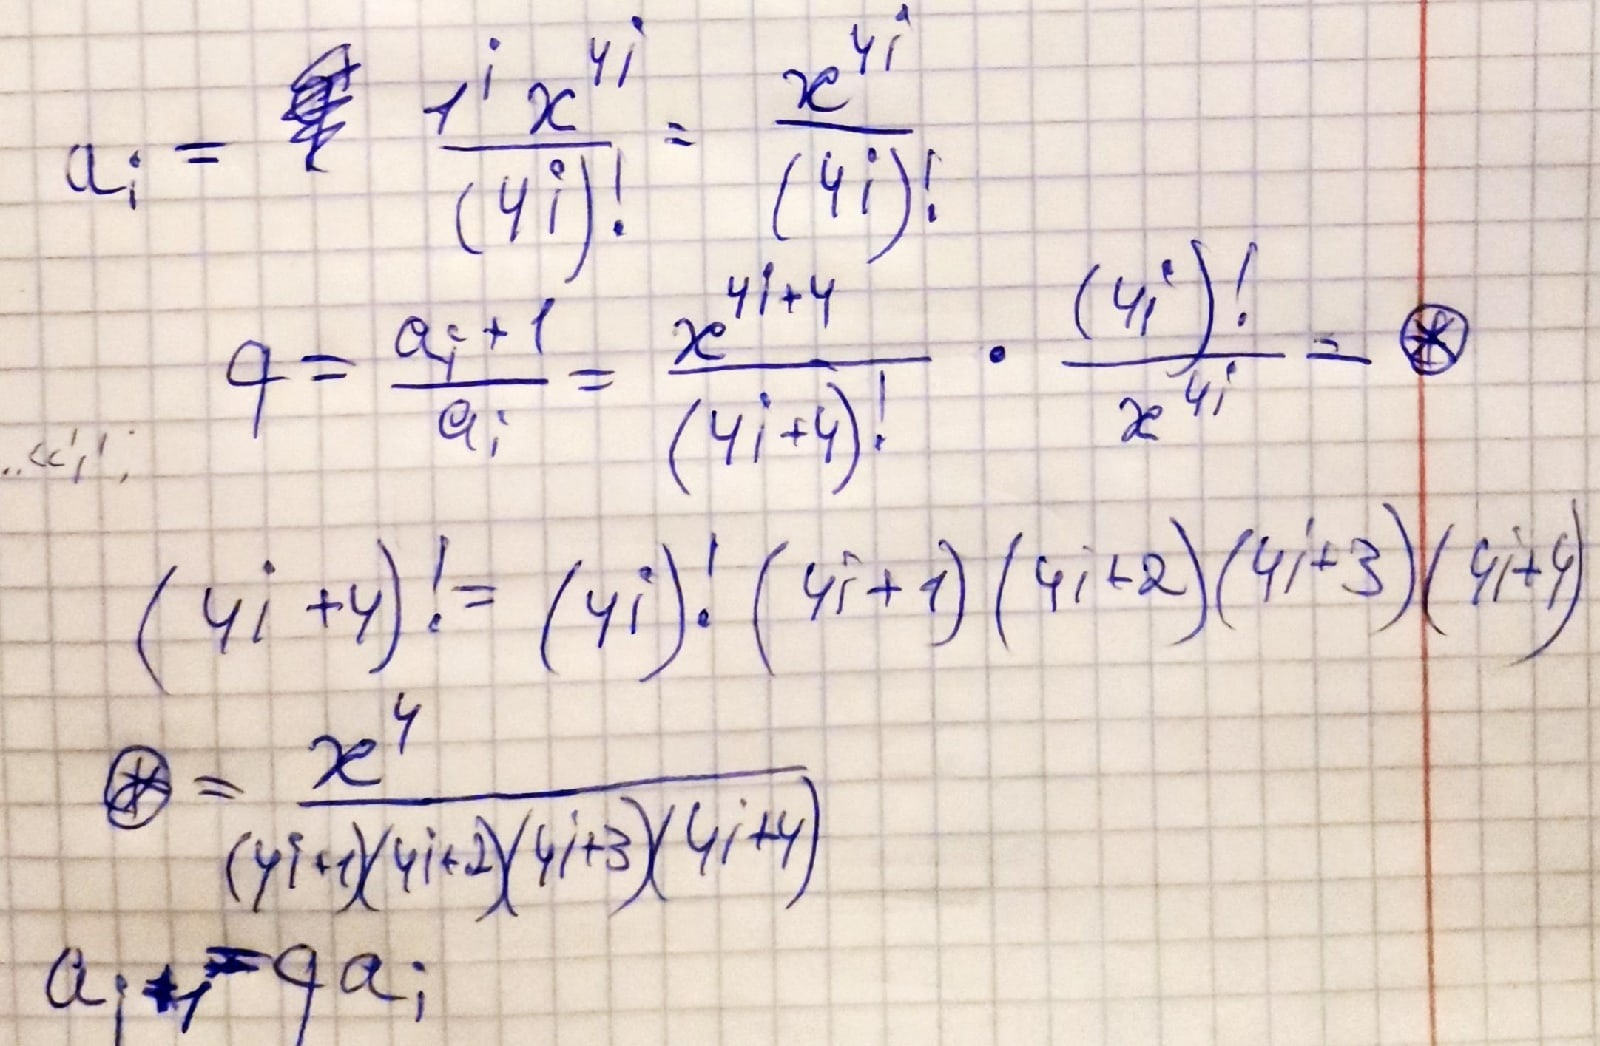 a_i = 1^i x^{4i} / (4i)! = x^{4i} / (4i)!
q = a_{i+1} / a_i = x^{4i+4} / (4i+4)! · (4i)! / x^{4i} = ⊛
(4i+4)! = (4i)! (4i+1)(4i+2)(4i+3)(4i+4)
⊛ = x^4 / (4i+1)(4i+2)(4i+3)(4i+4)
a_{i+1} = q a_i